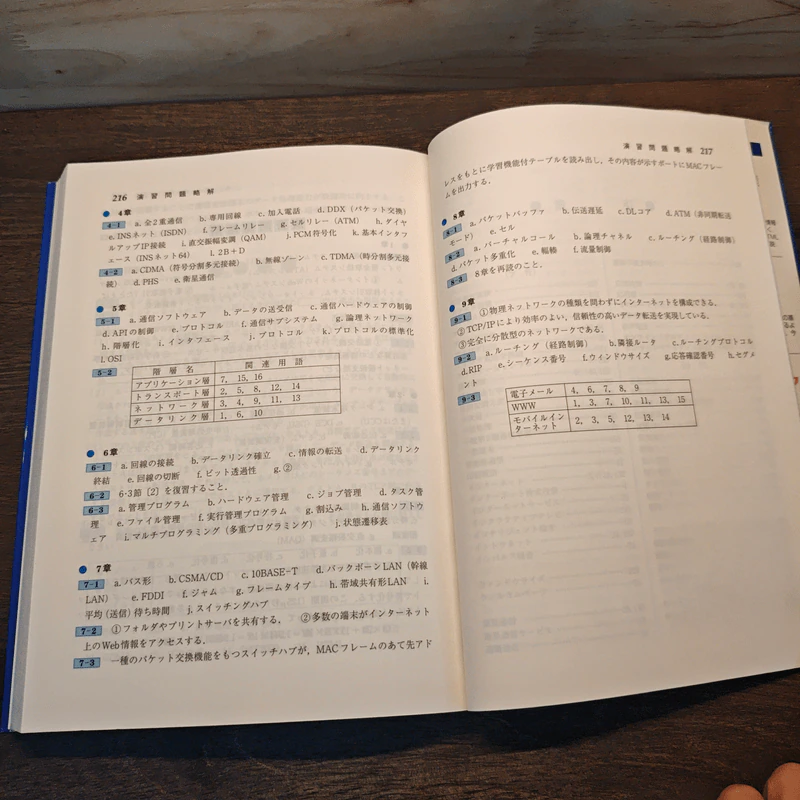 216 演習問題略解
● 4章
4-1 a. 全2重通信 b. 専用回線 c. 加入電話 d. DDX（パケット交換）
e. INSネット（ISDN） f. フレームリレー g. セルリレー（ATM） h. ダイヤ
ルアップIP接続 i. 直交振幅変調（QAM） j. PCM符号化 k. 基本インタフ
ェース（INSネット64） l. 2B+D
4-2 a. CDMA（符号分割多元接続） b. 無線ゾーン c. TDMA（時分割多元接
続） d. PHS e. 衛星通信
● 5章
5-1 a. 通信ソフトウェア b. データの送受信 c. 通信ハードウェアの制御
d. APIの制御 e. プロトコル f. 通信サブシステム g. 論理ネットワーク
h. 階層化 i. インタフェース j. プロトコル k. プロトコルの標準化
l. OSI
5-2
階層名 関連用語
アプリケーション層 7, 15, 16
トランスポート層 2, 5, 8, 12, 14
ネットワーク層 3, 4, 9, 11, 13
データリンク層 1, 6, 10
● 6章
6-1 a. 回線の接続 b. データリンク確立 c. 情報の転送 d. データリンク
終結 e. 回線の切断 f. ビット透過性 g. ②
6-2 6・3節［2］を復習すること．
6-3 a. 管理プログラム b. ハードウェア管理 c. ジョブ管理 d. タスク管
理 e. ファイル管理 f. 実行管理プログラム g. 割込み h. 通信ソフトウ
ェア i. マルチプログラミング（多重プログラミング） j. 状態遷移表
● 7章
7-1 a. バス形 b. CSMA/CD c. 10BASE-T d. バックボーンLAN（幹線
LAN） e. FDDI f. ジャム g. フレームタイプ h. 帯域共有形LAN i.
平均（送信）待ち時間 j. スイッチングハブ
7-2 ①フォルダやプリントサーバを共有する． ②多数の端末がインターネット
上のWeb情報をアクセスする．
7-3 一種のパケット交換機能をもつスイッチハブが，MACフレームのあて先アド
演習問題略解 217
レスをもとに学習機能付テーブルを読み出し，その内容が示すポートにMACフレー
ムを出力する．
● 8章
8-1 a. パケットバッファ b. 伝送遅延 c. DLコア d. ATM（非同期転送
モード） e. セル
8-2 a. バーチャルコール b. 論理チャネル c. ルーチング（経路制御）
d. パケット多重化 e. 輻輳 f. 流量制御
8-3 8章を再読のこと．
● 9章
9-1 ①物理ネットワークの種類を問わずにインターネットを構成できる．
②TCP/IPにより効率のよい，信頼性の高いデータ転送を実現している．
③完全に分散型のネットワークである．
9-2 a. ルーチング（経路制御） b. 隣接ルータ c. ルーチングプロトコル
d. RIP e. シーケンス番号 f. ウィンドウサイズ g. 応答確認番号 h. セグメ
ント
9-3
電子メール 4, 6, 7, 8, 9
WWW 1, 3, 7, 10, 11, 13, 15
モバイルイン
ターネット 2, 3, 5, 12, 13, 14